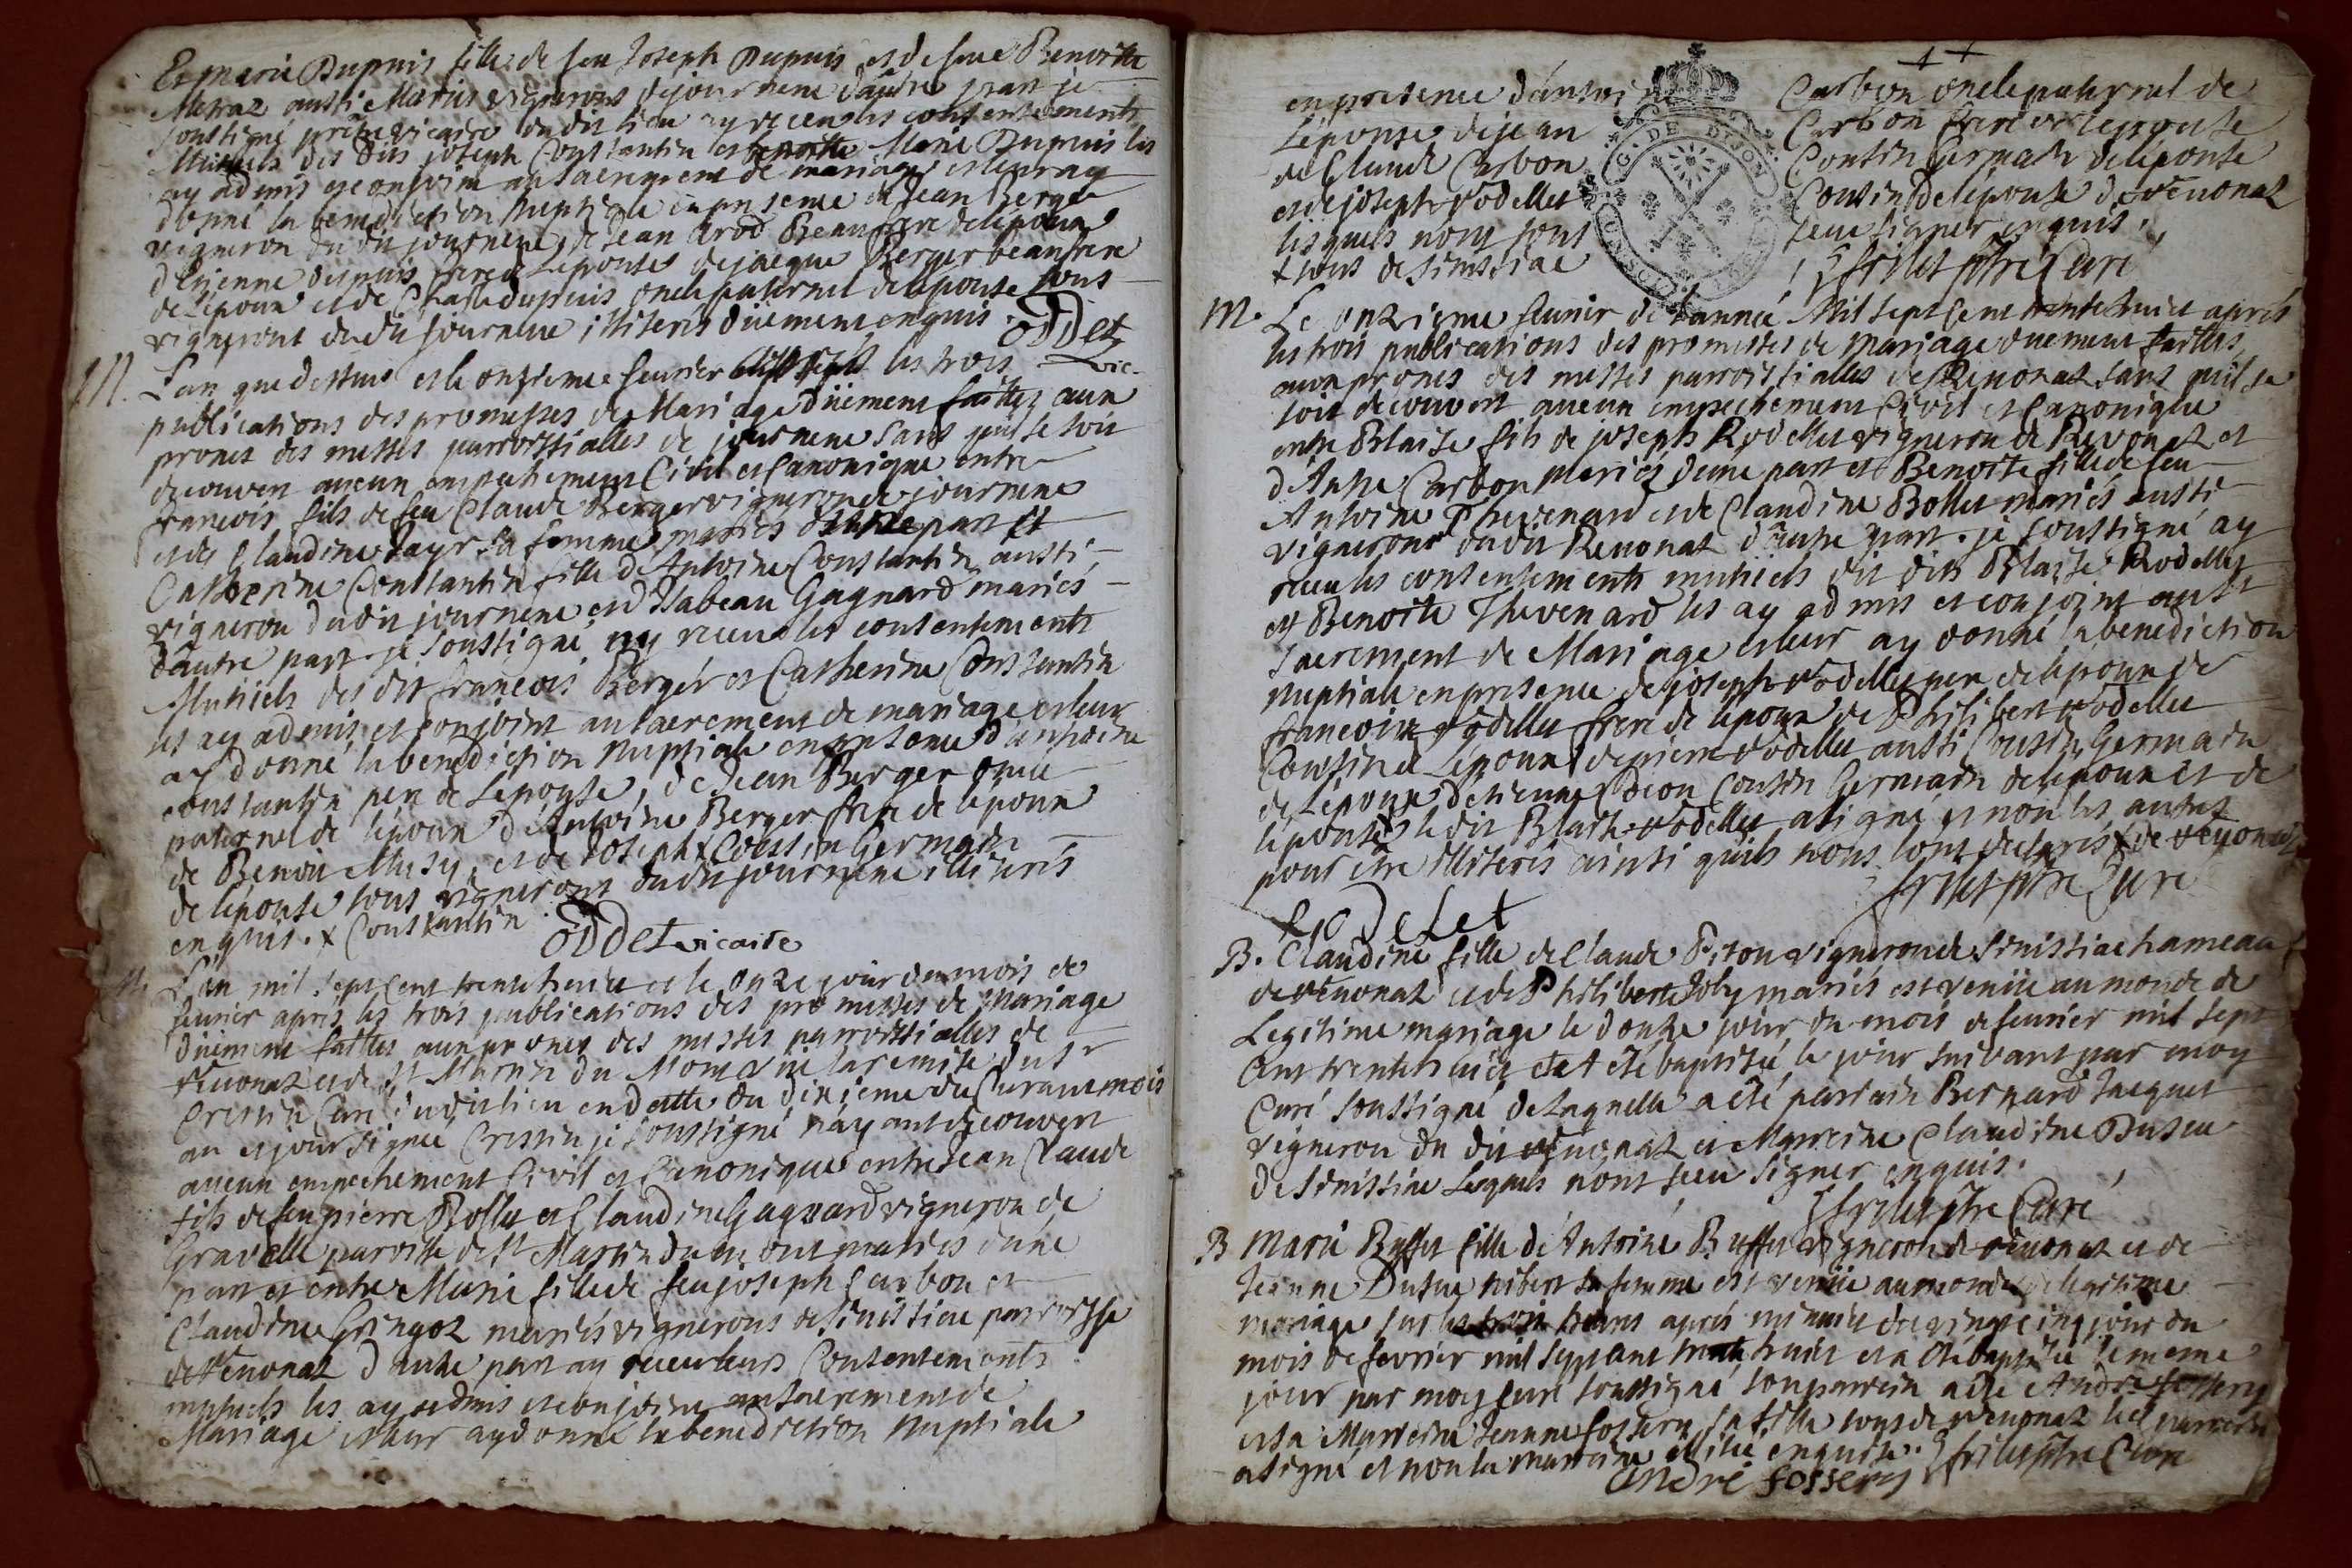 Et marie Dupuis fille de feu Joseph Dupuis et de feue Benoitte
Meraz aussi Mariés vignerons de journene dautre part je
soussigné prêtre vicaire dudit lieu ay receu les consentements
Mutuels des dits joseph Constantin et Marie Dupuis les
ay admis et conjoint au sacrement de mariage et leur ay
donné la benediction nuptiale en presence de Jean Berger
vigneron du dit journene, de Jean Beaufrere de l'epoux
d'etienne dupuis frere de L'epouse de jacque Berger beaufrere
de L'epoux et de dupuis oncle paternel de l'epouse tous
vignerons dudit journene illiterés düement enquis. oddet
vic.
M. L'an que dessus et le onzieme feurier les trois
publications des promesses de Mariage düement faittes aux
prones des messes parroissialles de journene sans qu'il se soit
decouvert aucun empechement Civil et Canonique entre
francois fils de feu Claude Berger vigneron de journene
et de Claudine sa femme mariés d'une part et
Catherine Constantin fille d'Antoine Constantin aussi
vigneron dudit journene et d'Isabeau Gagnard mariés
d'autre part je soussigné ay receu les consentements
Mutüels des dit francois Berger et Catherine Constantin
les ay admis et conjoint au sacrement de mariage et leur
ay donné la benediction Nuptiale en presence d'anthoine
constantin pere de Lepouse, de Jean Berger oncle
paternel de lepoux d'Antoine Berger frere de lepoux
de Benoit Musy, et de Joseph x Cousin Germain
de lepouse tous vignerons dudit journene illiterés
enquis. x Constantin
oddet vicaire
M. L'an mil sept cent trente huit et le onze jour du mois de
feurier après les trois publications des promesses de Mariage
düement faittes aux prones des messes parroissialles de
revonaz et de St Martin du Mont Vüe la remise du Sr
Cressin Curé dudit lieu en datte du dixieme du Courant mois
an et jour signée Cressin je soussigné n'ayant decouvert
aucun empechement Civil et Canonique entre Jean Claude
fils de feu pierre Bollet et Claudine Gagnard vigneron de
Gravelle paroisse de St Martin du mont mariés d'une
part et entre Marie fille de feu joseph Carbon et
Claudine Gringoz mariés vignerons de sinissiac parroisse
de revonaz d'autre part ay receu leurs Consentements
mutuels les ay admis et conjoint au sacrement de
Mariage et leur ay donné la benediction Nuptiale
en presence d'antoine Carbon oncle paternel de
Lepouse de jean Carbon frere de lepouse
de Claude Carbon Cousin Germain de lepouse
et de joseph rodellet Cousin de lepouse de revonaz
lesquels nont sceu signer enquis.
x tous de sinissiac frilet ptre Curé
G. DE DIJON
M. Le onzieme feurier de l'année Mil sept cent trente huict après
les trois publications des promesses de mariage duement faittes
aux prones des messes parroissialles de Revonaz sans qu'il se
soit decouvert aucun empechement Civil et Canonique
entre Blaise fils de joseph Rodellet vigneron de Revonaz et
d'Anne Carbon mariés d'une part et Benoite fille de feu
Antoine Thevenard et de Claudine Bollet mariés aussi
vignerons dudit Revonaz d'autre part. je soussigné ay
receu les consentements mutuels des dits Blaise Rodellet
et Benoite Thevenard les ay admis et conjoint au St
sacrement de Mariage et leur ay donné la benediction
nuptiale en presence de joseph rodellet pere de lepoux de
francois rodellet frere de lepoux de Philibert rodellet
Cousin de Lepoux de pierre rodellet aussi Cousin Germain
de Lepoux, d'etienne Cousin Germain de lepoux et de
lepouse, le dit Blaise rodellet a signé et non les autres
pour être illiterés ainsi qu'ils nous l'ont declarés x de revonaz
frilet ptre Curé
Rodelet
B. Claudine fille de Claude Piton vigneron de sinissiac hameau
de revonaz et de Philiberte Joly mariés est venüe au monde de
Legitime mariage le douze jour du mois de feurier mil sept
cent trente huict et a été baptisée le jour suivant par moy
Curé soussigné de Laquelle a été parrain Bernard Jacquet
vigneron du dit revonaz et Marreine Claudine Duten
de sinissiac Lesquels n'ont sceu signer enquis.
frilet ptre Curé
B Marie Buffet fille d'Antoine Buffet vigneron de revonaz et de
Jeanne sa femme est venüe au monde de legitime
mariage sur les heures après minuit du vingt cinq jour du
mois de fevrier mil sept cent trente huict et a été baptisée le meme
jour par moy curé soussigné son parrein a été André fossery
et sa Marreine Jeanne fossery sa fille tous de revonaz led parrein
a signé et non la marreine enquise. frilet ptre Cure
André fossery